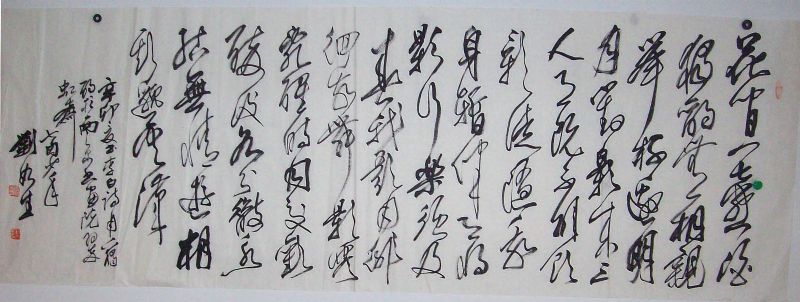 花間一壺酒
獨酌無相親
舉杯邀明
月對影成三
人月既不解飲
影徒隨我
身暫伴月將
影行樂須及
春我歌月徘
徊我舞影
亂醒時同交歡
醉後各分散永
結無情遊相
期邈雲漢
辛卯夏書李白詩月下獨
酌於雨
劉